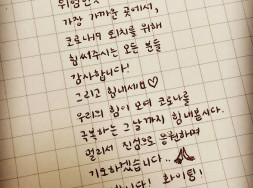 가장 가까운 곳에서,
코로나19 퇴치를 위해
힘써주시는 모든 분들
감사합니다!
그리고 힘내세요♡
우리의 힘이 모여 코로나를
극복하는 그날까지 힘내봅시다.
멀리서 진심으로 응원하며
기도하겠습니다..🙏
화이팅!